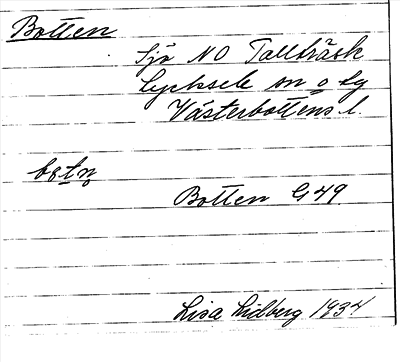 Botten
Sjö NO Tallträsk
Lycksele sn o lg
Västerbottens l.
Botten G 49
Lisa Lidberg 1934